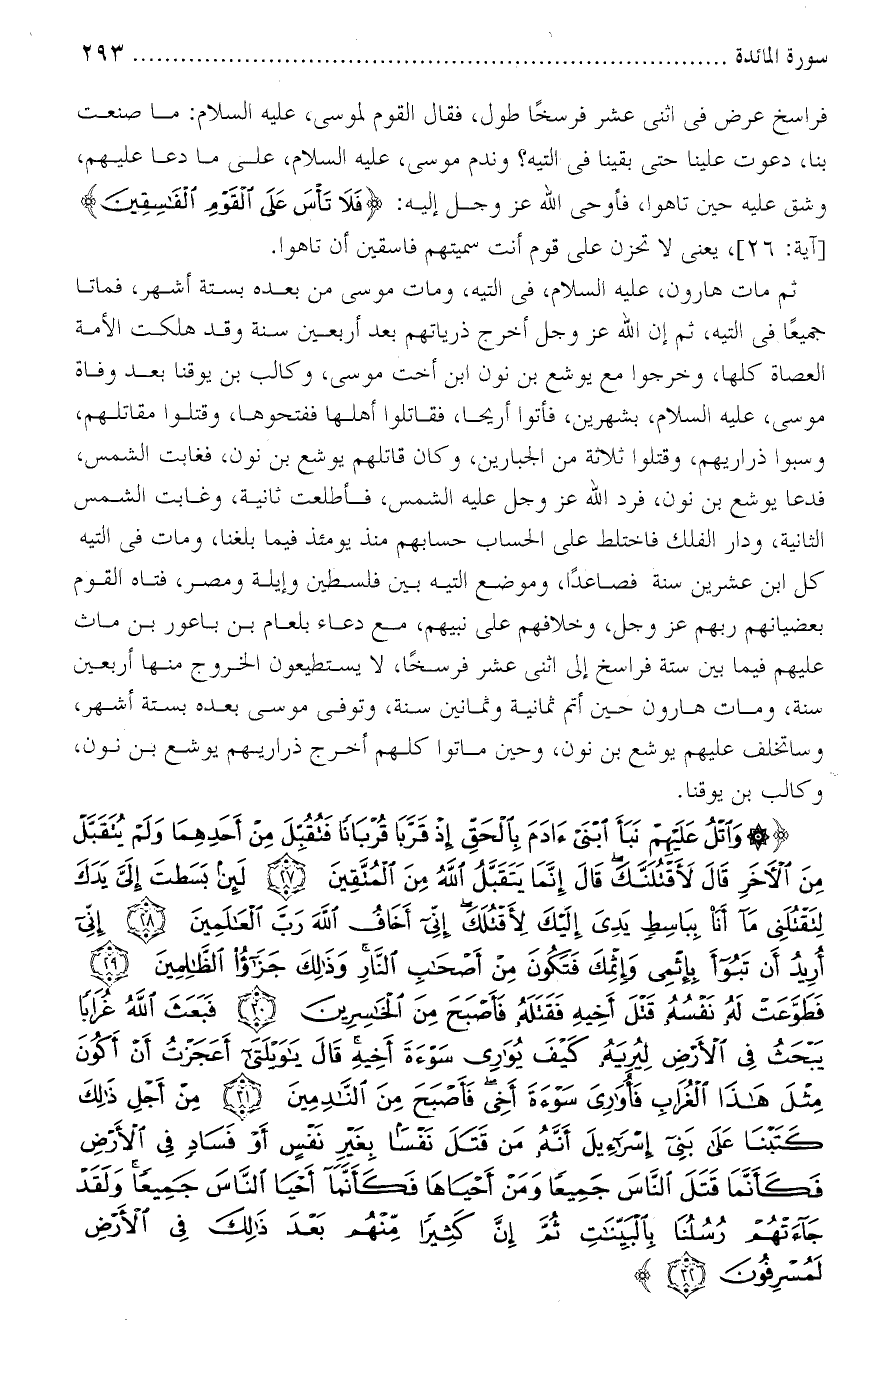 سورة المائدة ........................................................................... ٢٩٣
فراسخ عرض فى اثنى عشر فرسخًا طول، فقال القوم لموسى، عليه السلام: ما صنعت
بنا، دعوت علينا حتى بقينا فى التيه؟ وندم موسى، عليه السلام، على ما دعا عليهم،
وشق عليه حين تاهوا، فأوحى الله عز وجل إليه: ﴿فَلَا تَأْسَ عَلَى ٱلْقَوْمِ ٱلْفَٰسِقِينَ﴾
[آية: ٢٦]، يعنى لا تحزن على قوم أنت سميتهم فاسقين أن تاهوا.
ثم مات هارون، عليه السلام، فى التيه، ومات موسى من بعده بستة أشهر، فماتا
جميعًا فى التيه، ثم إن الله عز وجل أخرج ذرياتهم بعد أربعين سنة وقد هلكت الأمة
العصاة كلها، وخرجوا مع يوشع بن نون ابن أخت موسى، وكالب بن يوقنا بعد وفاة
موسى، عليه السلام، بشهرين، فأتوا أريحا، فقاتلوا أهلها ففتحوها، وقتلوا مقاتلهم،
وسبوا ذراريهم، وقتلوا ثلاثة من الجبارين، وكان قاتلهم يوشع بن نون، فغابت الشمس،
فدعا يوشع بن نون، فرد الله عز وجل عليه الشمس، فأطلعت ثانية، وغابت الشمس
الثانية، ودار الفلك فاختلط على الحساب حسابهم منذ يومئذ فيما بلغنا، ومات فى التيه
كل ابن عشرين سنة فصاعدًا، وموضع التيه بين فلسطين وإيلة ومصر، فتاه القوم
بعضيانهم ربهم عز وجل، وخلافهم على نبيهم، مع دعاء بلعام بن باعور بن ماث
عليهم فيما بين ستة فراسخ إلى اثنى عشر فرسخًا، لا يستطيعون الخروج منها أربعين
سنة، ومات هارون حين أتم ثمانية وثمانين سنة، وتوفى موسى بعده بستة أشهر،
وساتخلف عليهم يوشع بن نون، وحين ماتوا كلهم أخرج ذراريهم يوشع بن نون،
وكالب بن يوقنا.
﴿۞ وَٱتْلُ عَلَيْهِمْ نَبَأَ ٱبْنَىْ ءَادَمَ بِٱلْحَقِّ إِذْ قَرَّبَا قُرْبَانًا فَتُقُبِّلَ مِنْ أَحَدِهِمَا وَلَمْ يُتَقَبَّلْ
مِنَ ٱلْءَاخَرِ قَالَ لَأَقْتُلَنَّكَ ۖ قَالَ إِنَّمَا يَتَقَبَّلُ ٱللَّهُ مِنَ ٱلْمُتَّقِينَ ﴿٢٧﴾ لَئِنۢ بَسَطتَ إِلَىَّ يَدَكَ
لِتَقْتُلَنِى مَآ أَنَا۠ بِبَاسِطٍ يَدِىَ إِلَيْكَ لِأَقْتُلَكَ ۖ إِنِّىٓ أَخَافُ ٱللَّهَ رَبَّ ٱلْعَٰلَمِينَ ﴿٢٨﴾ إِنِّىٓ
أُرِيدُ أَن تَبُوٓأَ بِإِثْمِى وَإِثْمِكَ فَتَكُونَ مِنْ أَصْحَٰبِ ٱلنَّارِ ۚ وَذَٰلِكَ جَزَٰٓؤُا۟ ٱلظَّٰلِمِينَ ﴿٢٩﴾
فَطَوَّعَتْ لَهُۥ نَفْسُهُۥ قَتْلَ أَخِيهِ فَقَتَلَهُۥ فَأَصْبَحَ مِنَ ٱلْخَٰسِرِينَ ﴿٣٠﴾ فَبَعَثَ ٱللَّهُ غُرَابًا
يَبْحَثُ فِى ٱلْأَرْضِ لِيُرِيَهُۥ كَيْفَ يُوَٰرِى سَوْءَةَ أَخِيهِ ۚ قَالَ يَٰوَيْلَتَىٰٓ أَعَجَزْتُ أَنْ أَكُونَ
مِثْلَ هَٰذَا ٱلْغُرَابِ فَأُوَٰرِىَ سَوْءَةَ أَخِى ۖ فَأَصْبَحَ مِنَ ٱلنَّٰدِمِينَ ﴿٣١﴾ مِنْ أَجْلِ ذَٰلِكَ
كَتَبْنَا عَلَىٰ بَنِىٓ إِسْرَٰٓءِيلَ أَنَّهُۥ مَن قَتَلَ نَفْسًۢا بِغَيْرِ نَفْسٍ أَوْ فَسَادٍ فِى ٱلْأَرْضِ
فَكَأَنَّمَا قَتَلَ ٱلنَّاسَ جَمِيعًا وَمَنْ أَحْيَاهَا فَكَأَنَّمَآ أَحْيَا ٱلنَّاسَ جَمِيعًا ۚ وَلَقَدْ
جَآءَتْهُمْ رُسُلُنَا بِٱلْبَيِّنَٰتِ ثُمَّ إِنَّ كَثِيرًا مِّنْهُم بَعْدَ ذَٰلِكَ فِى ٱلْأَرْضِ
لَمُسْرِفُونَ ﴿٣٢﴾ ﴾